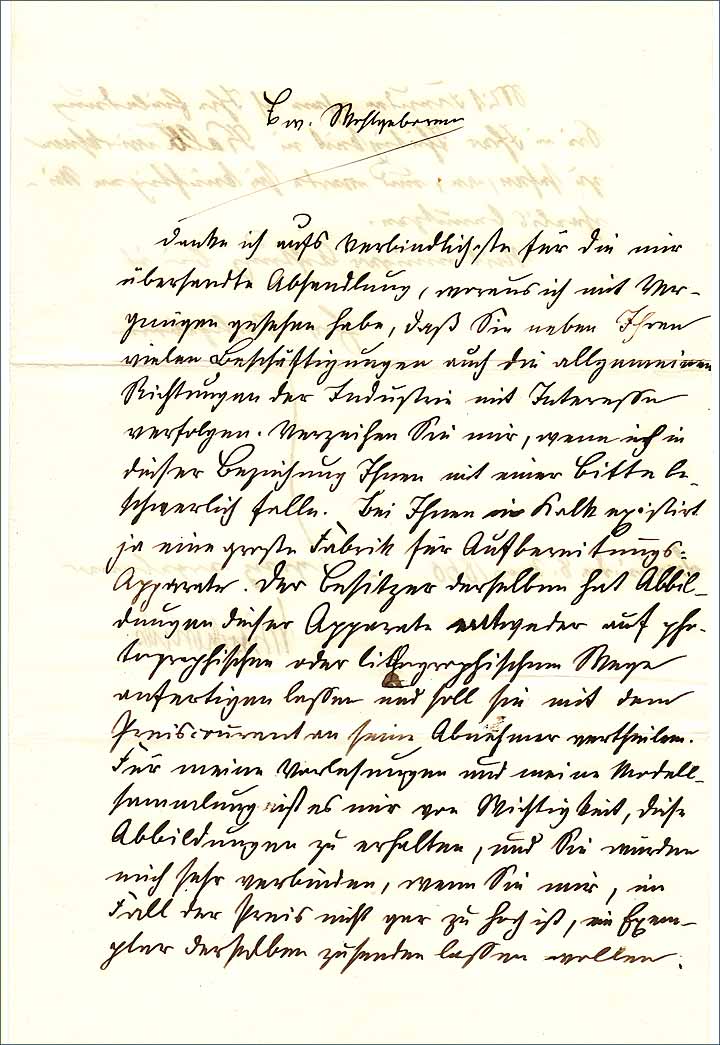 Ew. Wohlgeboren
danke ich aufs Verbindlichste für die mir
übersandte Abhandlung, woraus ich mit Ver-
gnügen gesehen habe, daß Sie neben Ihren
vielen Beschäftigungen auch die allgemeinen
Richtungen der Industrie mit Interesse
verfolgen. Verzeihen Sie mir, wenn ich in
dieser Beziehung Ihnen mit einer Bitte be-
schwerlich falle. Bei Ihnen in Kalk existirt
ja eine große Fabrik für Aufbereitungs-
Apparate. Der Besitzer derselben hat Abbil-
dungen dieser Apparate entweder auf pho-
tographischem oder lithographischem Wege
anfertigen lassen und soll sie mit dem
Preiscourant an seine Abnehmer vertheilen.
Für meine Vorlesungen und meine Modell-
sammlung ist es mir von Wichtigkeit, diese
Abbildungen zu erhalten, und Sie würden
mich sehr verbinden, wenn Sie mir, im
Fall der Preis nicht gar zu hoch ist, ein Exem-
plar derselben zusenden lassen wollen.